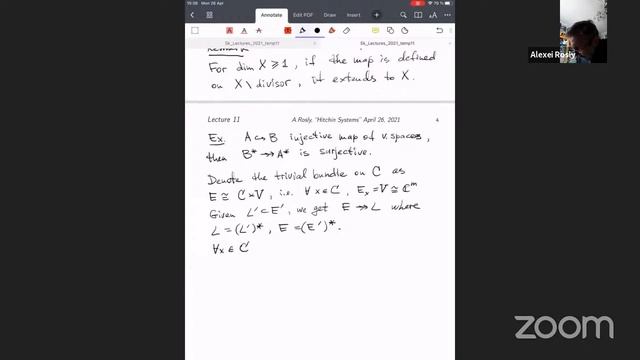 19:38 Mon 26 Apr
79 %
Annotate
Edit PDF
Draw
Insert
Sk_Lectures_2021_temp11
Sk_Lectures_2021_temp11
Remark
For dim X ⩾ 1, if the map is defined
on X \ divisor, it extends to X.
Lecture 11
A Rosly, "Hitchin Systems" April 26, 2021
4
Ex. A ↪ B injective map of v. spaces,
then B* ↠ A* is surjective.
Denote the trivial bundle on C as
E ≅ C×V, i.e. ∀ x ∈ C, Eₓ = V ≅ ℂᵐ
Given L' ⊂ E', we get E ↠ L where
L = (L')*, E = (E')*.
∀x ∈ C
Alexei Rosly
ZOOM